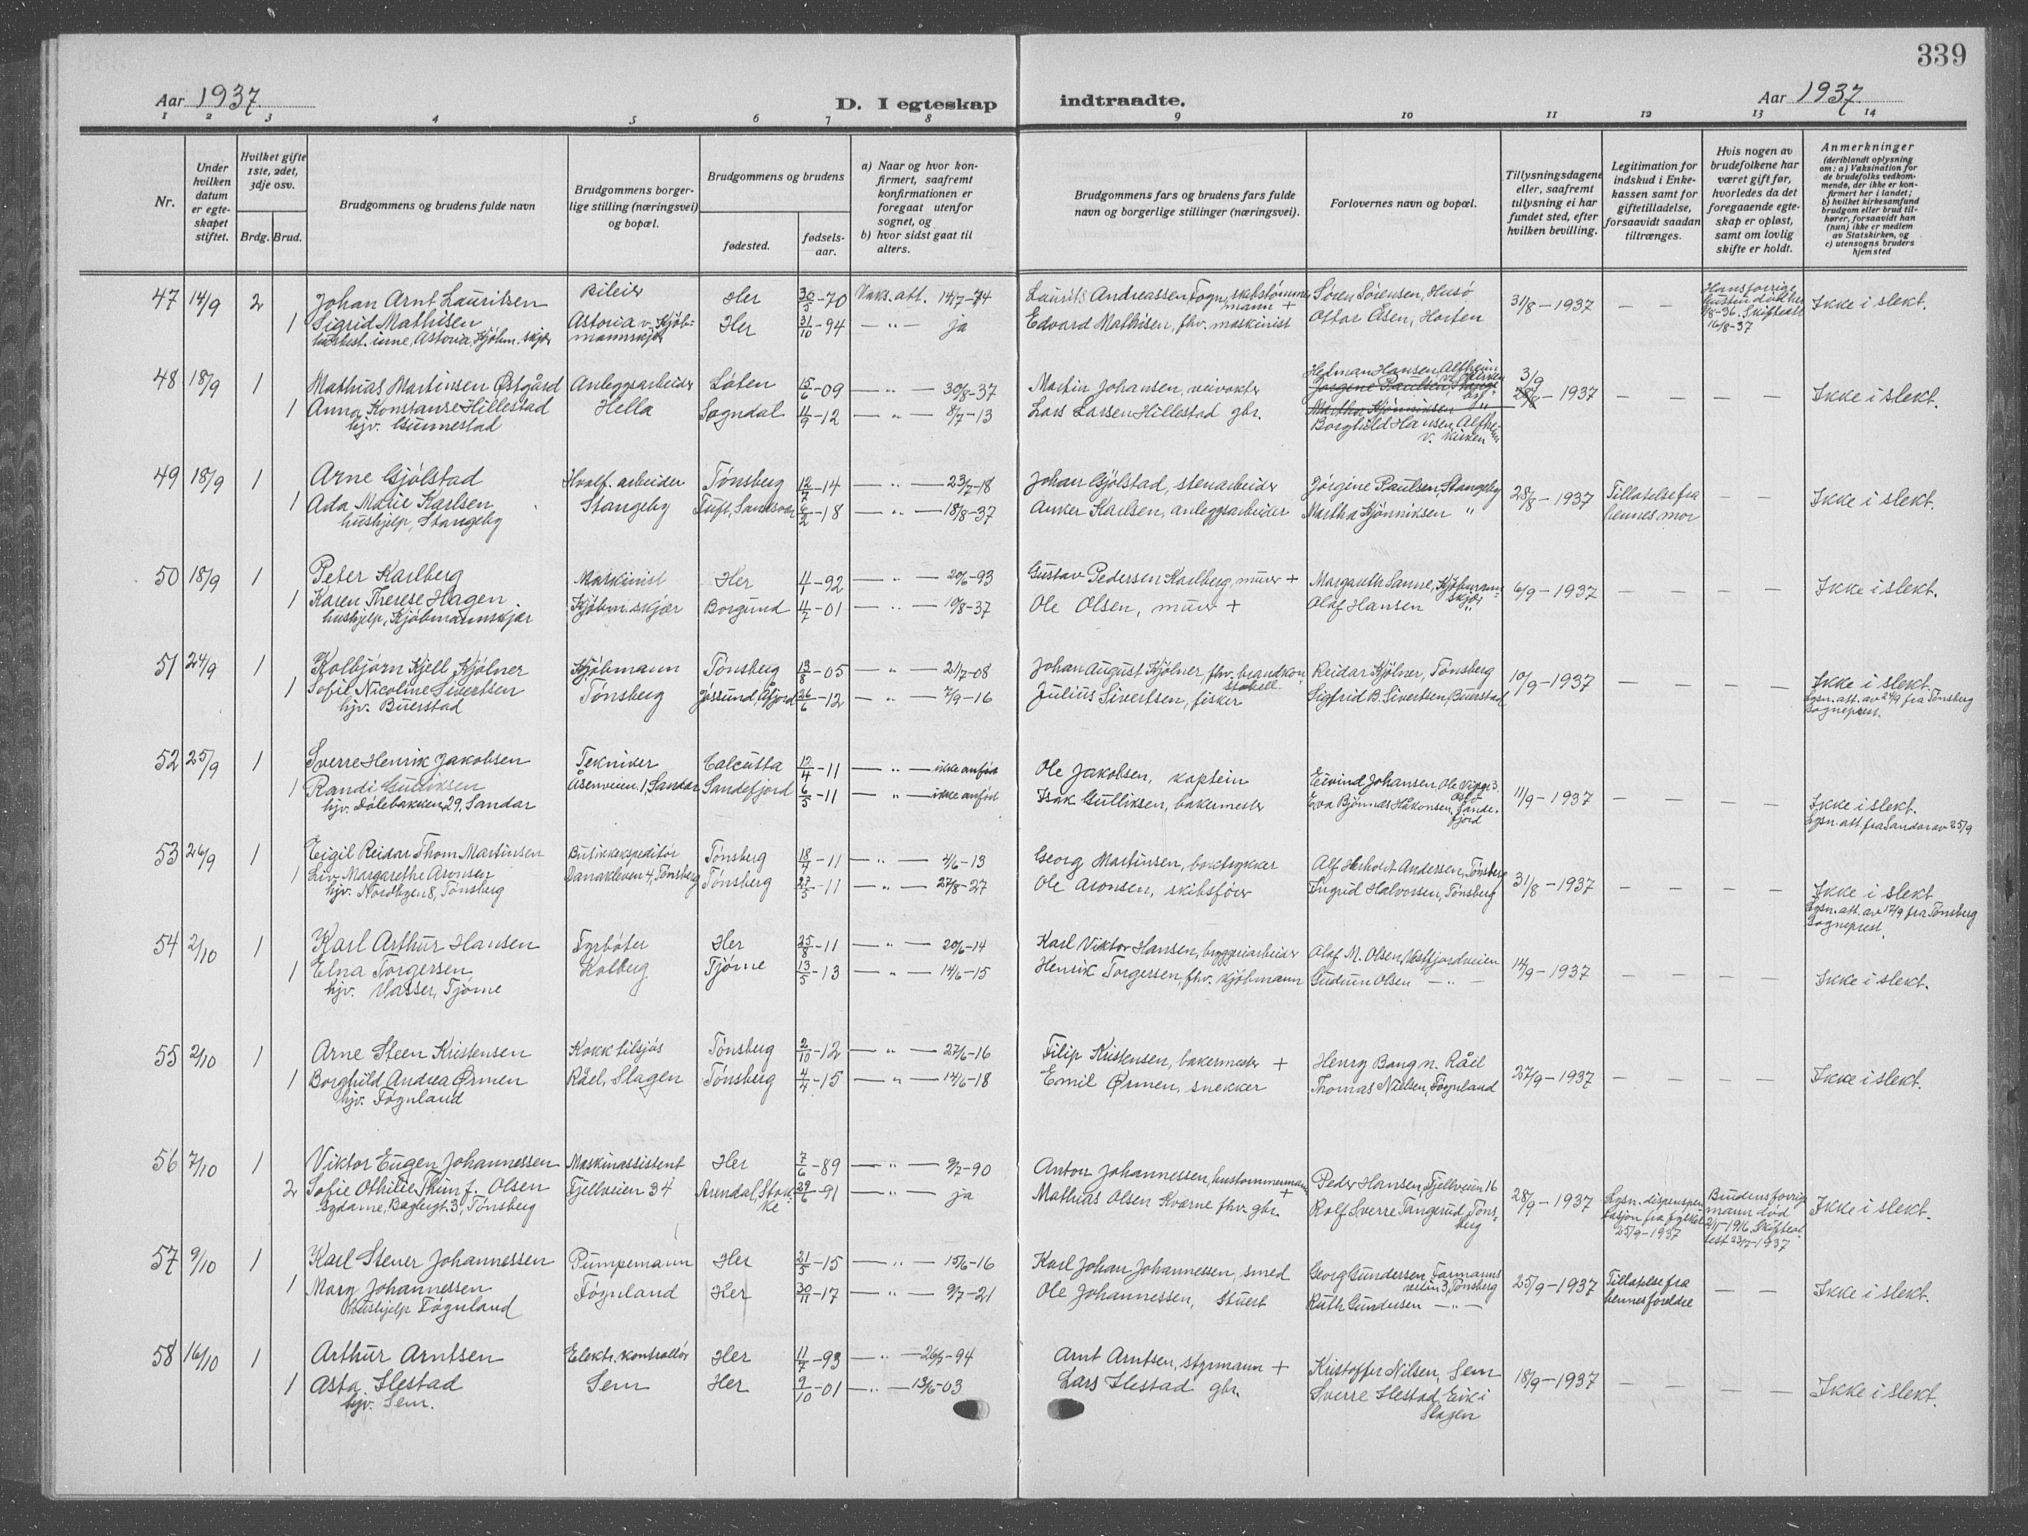 339
Aar 1937. D. I egteskap indtraadte. Aar 1937.
1 2 3 4 5 6 7 8 9 10 11 12 13 14
Nr.
Under hvilken datum er egteskapet stiftet.
Hvilket gifte 1ste, 2det, 3dje osv.
Brdg. Brud.
Brudgommens og brudens fulde navn
Brudgommens borgerlige stilling (næringsvei) og bopæl.
Brudgommens og brudens
fødested.
fødselsaar.
a) Naar og hvor konfirmert, saafremt konfirmationen er foregaat utenfor sognet, og
b) hvor sidst gaat til alters.
Brudgommens fars og brudens fars fulde navn og borgerlige stillinger (næringsvei).
Forlovernes navn og bopæl.
Tillysningsdagene eller, saafremt tillysning ei har fundet sted, efter hvilken bevilling.
Legitimation for indskud i Enkekassen samt for giftetilladelse, forsaavidt saadan tiltrænges.
Hvis nogen av brudefolkene har været gift før, hvorledes da det foregaaende egteskap er opløst, samt om lovlig skifte er holdt.
Anmerkninger
(deriblandt oplysning om: a) Vaksination for de brudefolks vedkommende, der ikke er konfirmert her i landet; b) hvilket kirkesamfund brudgom eller brud tilhører, forsaavidt han (hun) ikke er medlem av Statskirken, og c) utensogns bruders hjemsted
47 14/9 2 Johan Arnt Lauritsen Bileier Her 30/5-70 Vaks. att. 14/7-74 Laurits Andreassen Togn, skibstømmermann + Søren Sørensen, Husø 31/8-1937 — — Ikke i slekt.
1 Sigrid Mathisen Astoria v. Kjøbmannskjær Her 31/10-94 — „ — ja Edvard Mathisen, fhv. maskinist Ottar Olsen, Horten
48 18/9 1 Mathias Martinsen Østgård Anleggsarbeider Løten 15/6-09 — „ — 30/8-37 Martin Johansen, veivokter Hedman Hansen, Alfheim v. kirken 3/9 -1937 — — — Ikke i slekt.
1 Anna Konstanse Hillestad Hella Sogndal 14/9-12 — „ — 8/7-13 Lars Larsen Hillestad gbr. Borghild Hansen, Alfheim v. kirken
hjv. Gunnestad
49 18/9 1 Arne Gjølstad Hvalf. arbeider Tønsberg 12/7-14 — „ — 23/7-18 Johan Gjølstad, stenarbeider Jørgine Paulsen, Stangeby 28/8-1937 Tillatelse fra hennes mor — — Ikke i slekt.
1 Ada Marie Karlsen Stangeby Tuft, Sandsvær 6/2-18 — „ — 18/8-37 Anker Karlsen, anleggsarbeider Martha Kjønniksen „
hushjelp, Stangeby
50 18/9 1 Peter Karlberg Maskinist Her -92 — „ — 20/6-93 Gustav Pedersen Karlberg, murer + Margareth Sanne, Kjøbmannskjær 6/9-1937 — — — Ikke i slekt.
1 Karen Therese Hagen Kjøbm. skjær Borgund 4/7-01 — „ — 10/8-37 Ole Olsen, murer + Olaf Hansen „
hushjelp, Kjøbmannskjær
51 24/9 1 Kolbjørn Kjell Kjølner Kjøbmann Tønsberg 13/8-05 — „ — 21/7-08 Johan August Kjølner, fhv. brandkonstabel Reidar Kjølner, Tønsberg 10/9-1937 — — — Ikke i slekt.
1 Sofie Nicoline Sivertsen Tønsberg Jøssund, Åfjord 26/6-12 — „ — 7/9-16 Julius Sivertsen, fisker Sigfrid B. Sivertsen, Buerstad Lysn. att. av 24/9 fra Tønsberg Sogneprest.
hjv. Buerstad
52 25/9 1 Sverre Henrik Jakobsen Tekniker Calcutta 12/4-11 — „ — ikke anført Ole Jakobsen, kaptein Eivind Johansen, Ole Vigs g. 3. Oslo 11/9-1937 — — — Ikke i slekt.
1 Randi Gulliksen Åsenveien 1, Sandar Sandefjord 6/5-11 — „ — ikke anført Isak Gulliksen, bakermester Eva Bjønnes Håkonsen, Sandefjord Lysn. att. fra Sandar av 25/9
hjv. Dølebakken 29, Sandar
53 26/9 1 Eigil Reidar Thom Martinsen Butikkekspeditør Tønsberg 18/4-11 — „ — 4/6-13 Georg Martinsen, boktrykker Alf Herholdt Andersen, Tønsberg 31/8-1937 — — — Ikke i slekt
1 Liv Margarethe Aronsen Danakleven 4, Tønsberg Tønsberg 27/5-11 — „ — 27/8-27 Ole Aronsen, skibsfører Ingrid Halvorsen, Tønsberg Lysn. att. av 17/9 fra Tønsberg Sogneprest.
hjv. Nordbyen 8, Tønsberg
54 2/10 1 Karl Arthur Hansen Fyrbøter Her 25/8-11 — „ — 20/6-14 Karl Viktor Hansen, bryggeriarbeider Olaf M. Olsen, Vestfjordveien 14/9-1937 — — — Ikke i slekt.
1 Elna Torgersen Kolberg Tjøme 13/5-13 — „ — 14/6-15 Henrik Torgersen, fhv. kjøbmann Gudrun Olsen — „ —
hjv. Vasser, Tjøme
55 2/10 1 Arne Steen Kristensen Kokk tilsjøs Tønsberg 2/10-12 — „ — 27/6-16 Filip Kristensen, bakermester + Henry Bang n. Råel 27/9-1937 — — — Ikke i slekt.
1 Borghild Andrea Ørmen Råel, Slagen Tønsberg 4/4-15 — „ — 14/6-18 Emil Ørmen, snekker Thomas Nielsen, Føynland
hjv. Føynland
56 7/10 1 Viktor Eugen Johannessen Maskinassistent Her 7/6-89 — „ — 9/7-90 Anton Johannessen, hustømmermann + Peder Hansen, Fjellveien 16 28/9-1937 Lysn. dispensasjon fra fylket 25/9-1937 Brudens forrige mann død 2/11-1916 Skifteattest 23/7-1937 Ikke i slekt.
2 Sofie Othilie Thim f. Olsen Fjellveien 34 Arendal, Stokke 29/6-91 — „ — ja Mathias Olsen Kværne fhv. gbr. Rolf Sverre Tangerud, Tønsberg
sydame, Baglergt. 3, Tønsberg
57 9/10 1 Karl Stener Johannessen Pumpemann Her 21/5-15 — „ — 15/6-16 Karl Johan Johannessen, smed Georg Gundersen, Farmannsveien 3, Tønsberg 25/9-1937 Tillatelse fra hennes foreldre — — Ikke i slekt.
1 Mary Johannessen Føynland Her 30/11-17 — „ — 9/7-21 Ole Johannessen, Stuert Ruth Gundersen — „ —
hushjelp Føynland
58 16/10 1 Arthur Arntsen Elektr. kontrollør Her 11/7-93 — „ — -94 Arnt Arntsen, styrmann + Kristoffer Nilsen, Sem 18/9-1937 — — — Ikke i slekt.
1 Asta Ilestad Sem Her 9/10-01 — „ — 13/6-03 Lars Ilestad gbr. Sverre Ilestad, Eik i Slagen
hjv. Sem.